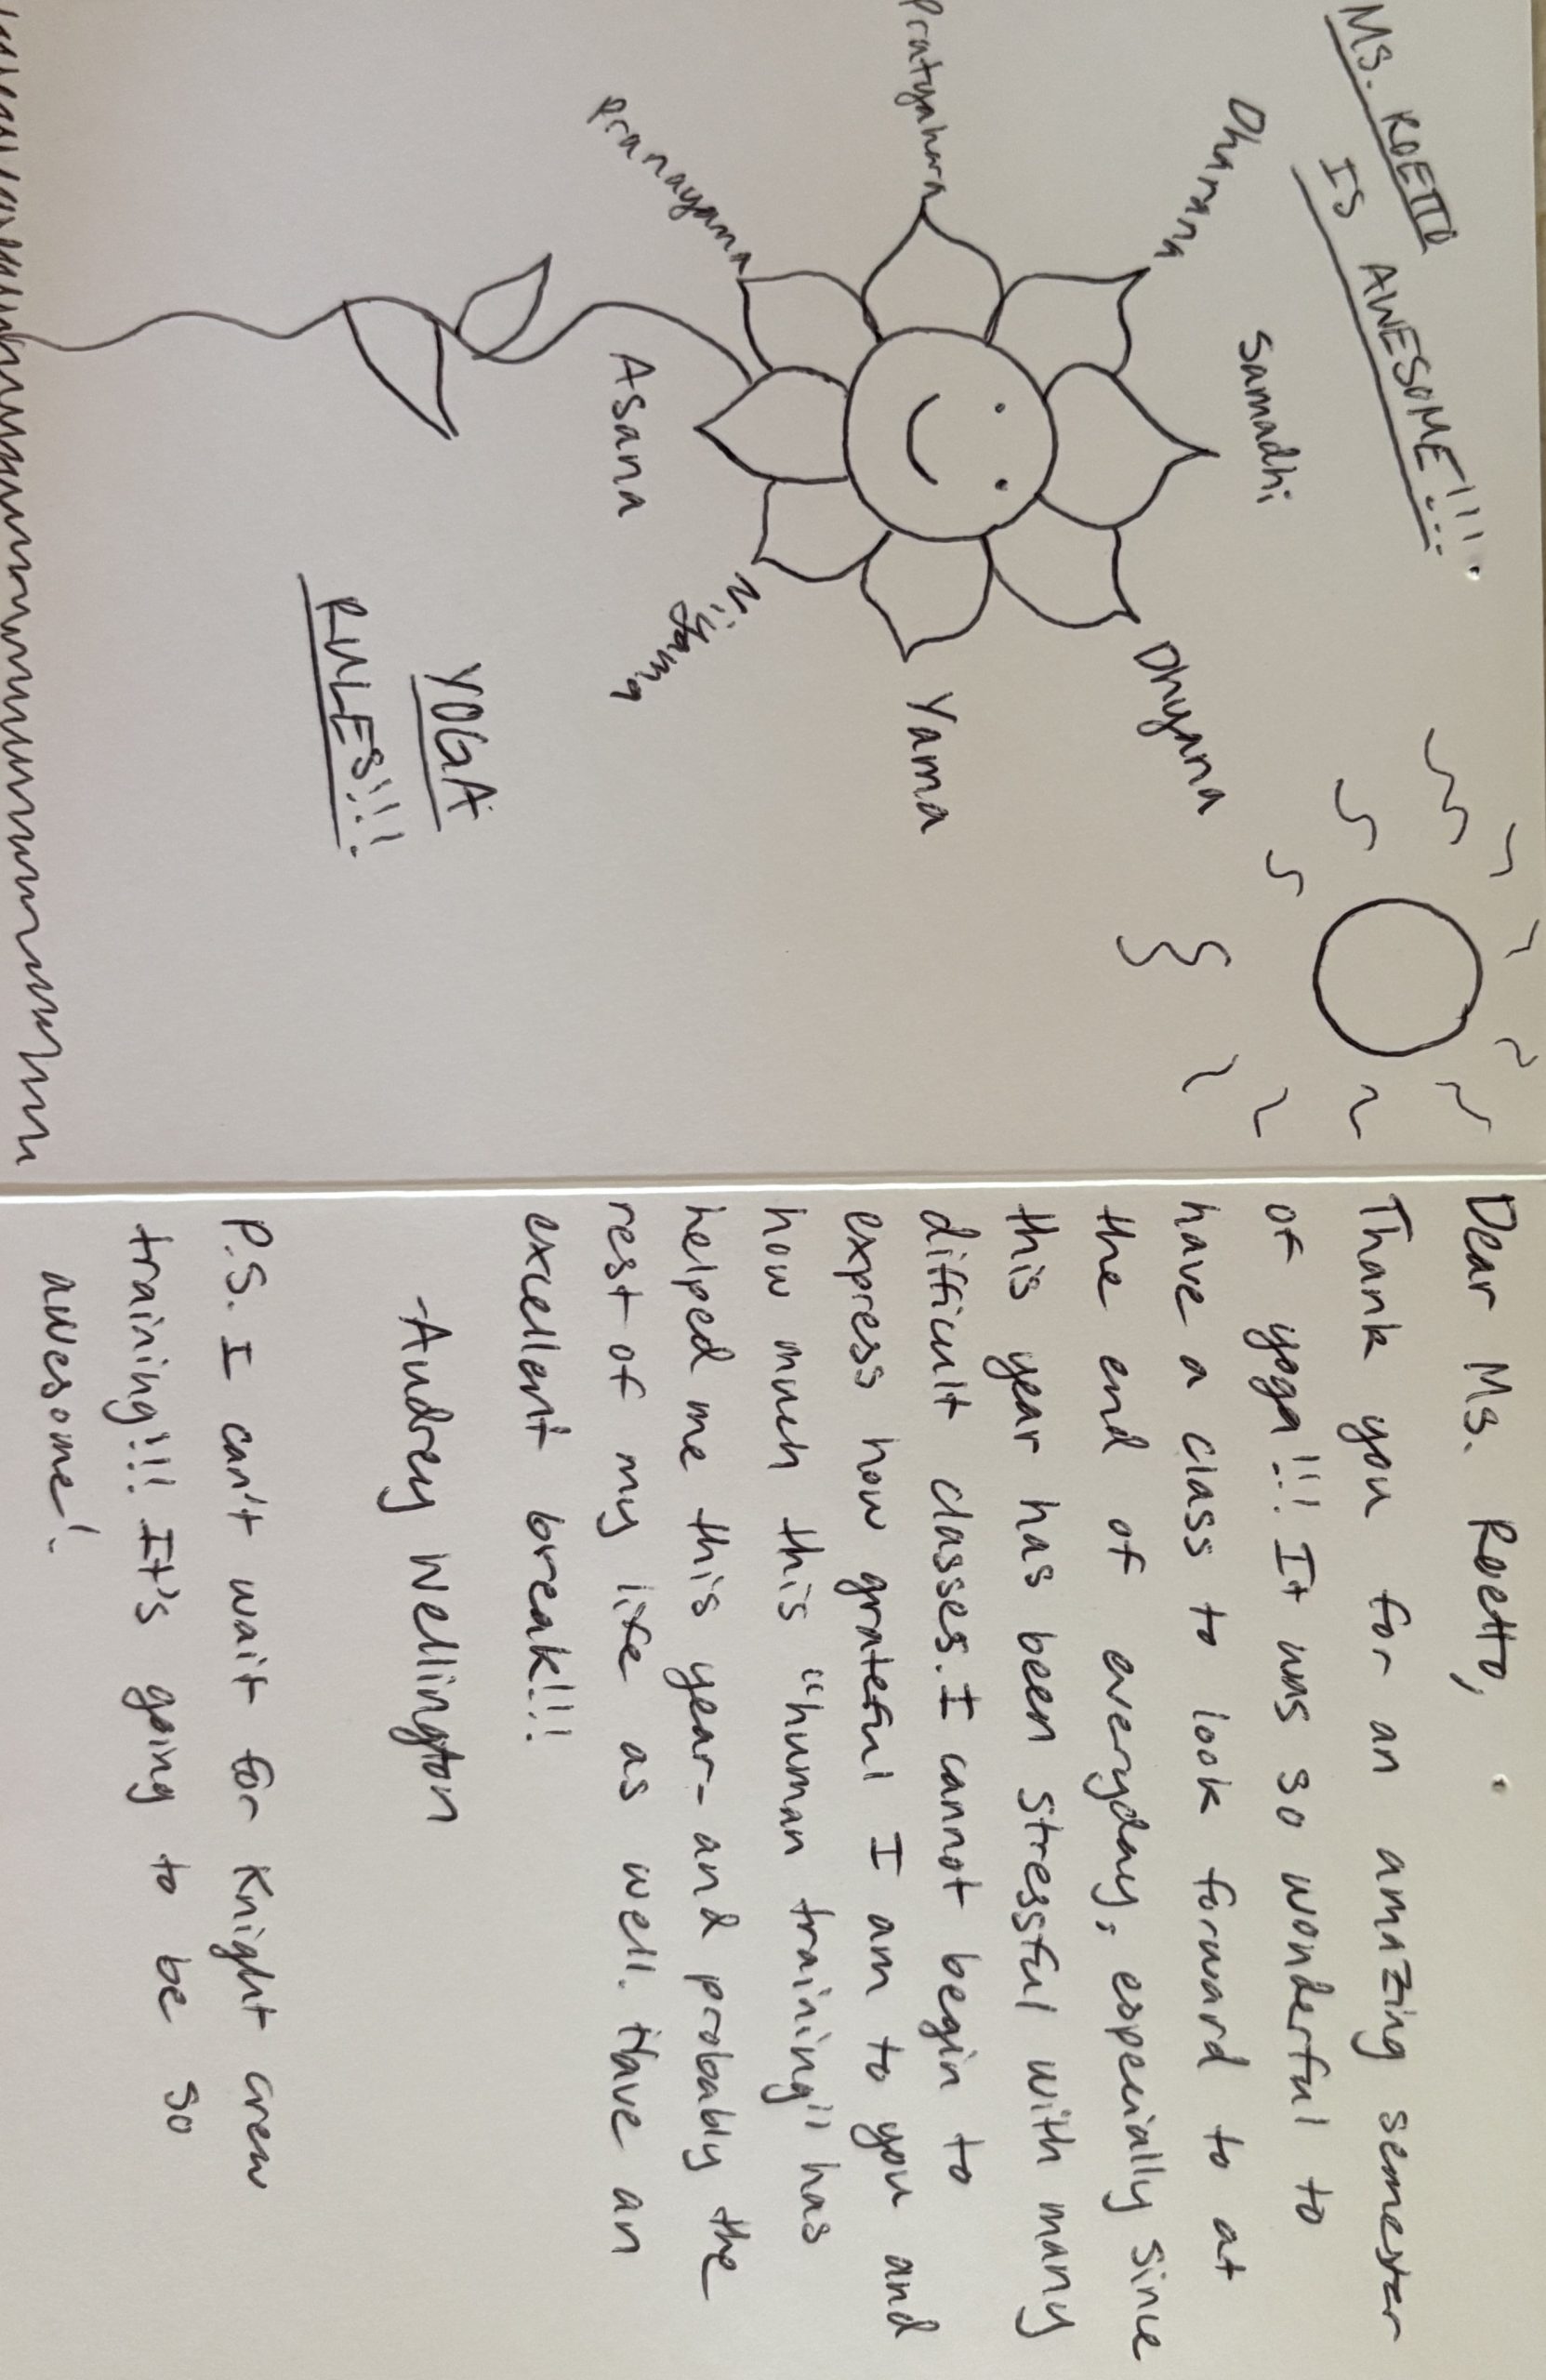 MS. ROETTO
IS AWESOME!!!
Samadhi
Dharana
Dhyana
Pratyahara
Yama
Pranayama
Niyama
Asana
YOGA
RULES!!!
Dear Ms. Roetto,
Thank you for an amazing semester
of yoga!!! It was so wonderful to
have a class to look forward to at
the end of everyday, especially since
this year has been stressful with many
difficult classes. I cannot begin to
express how grateful I am to you and
how much this "human training" has
helped me this year - and probably the
rest of my life as well. Have an
excellent break!!!
-Audrey Wellington
P.S. I can't wait for Knight crew
training!!! It's going to be so
awesome!